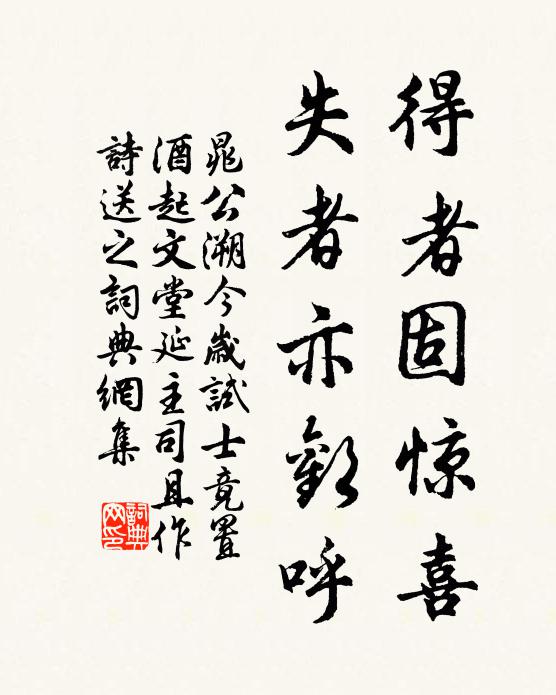 得者固惊喜
失者亦歡呼
晁公溯今歲試士竟置
酒起文堂延主司且作
詩送之詞典網集
詞典网印